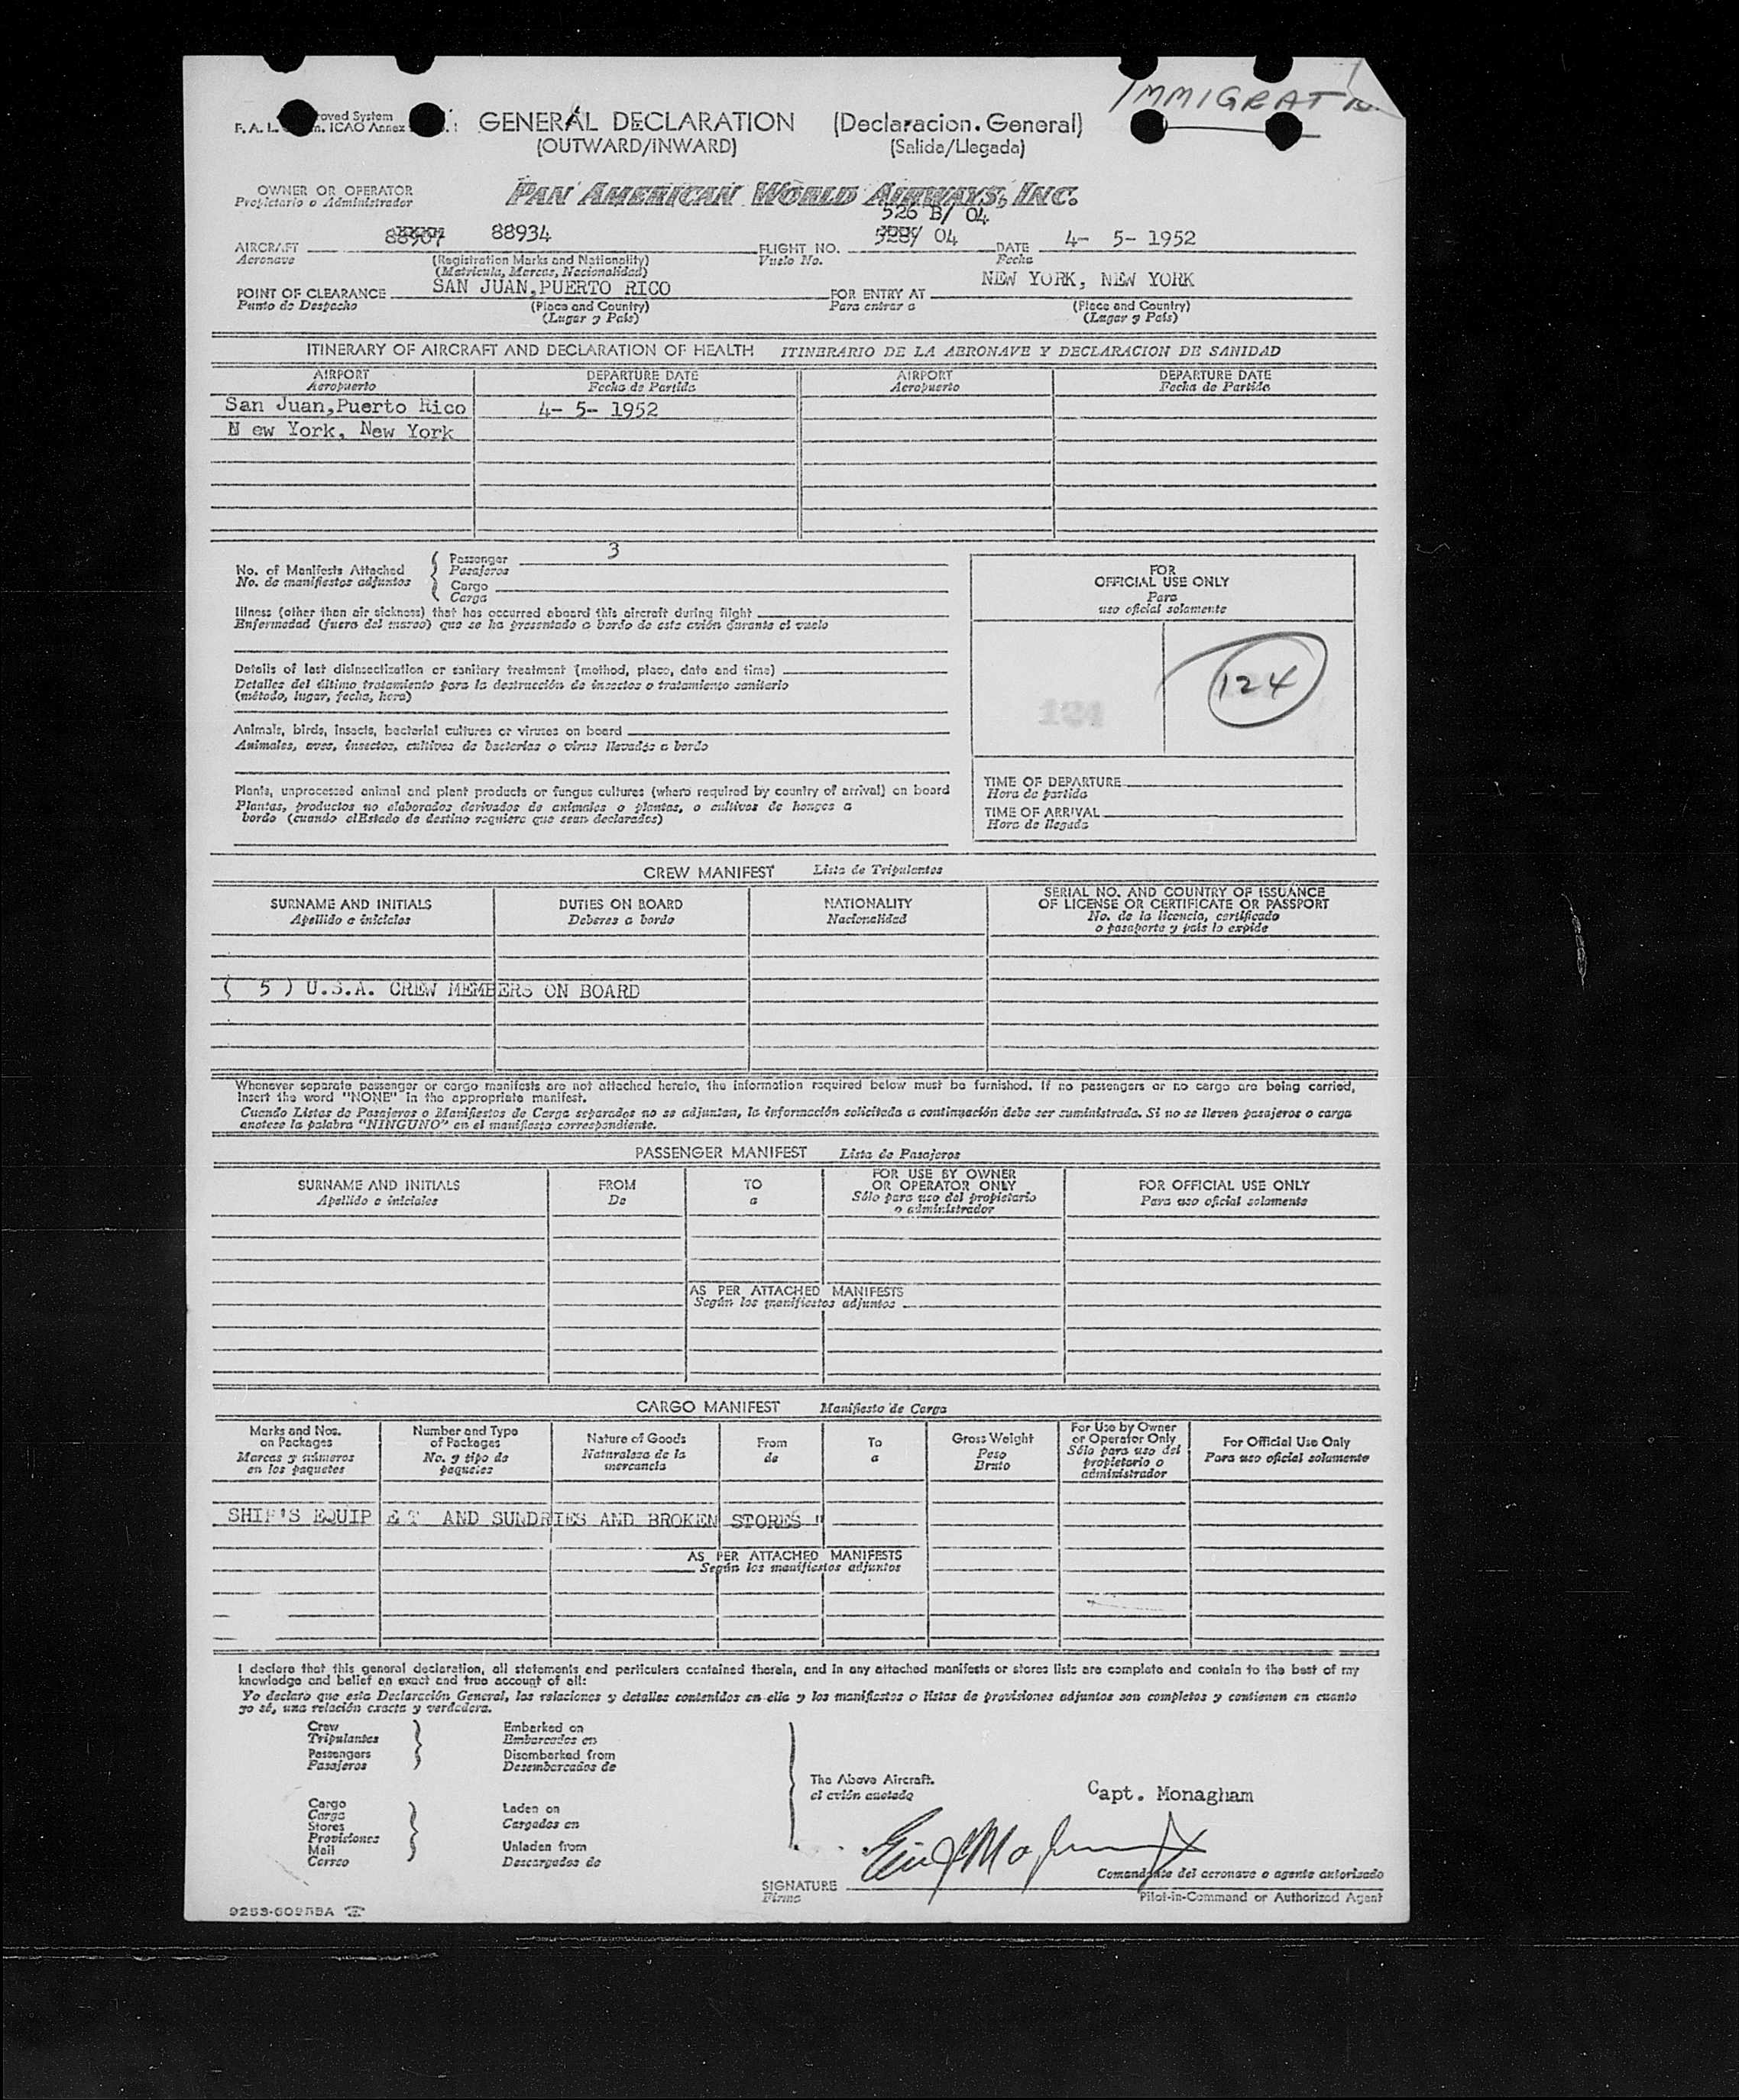 IMMIGRAT
roved System
F. A. L. n. ICAO Annex
GENERAL DECLARATION (Declaracion. General)
(OUTWARD/INWARD) (Salida/Llegada)
OWNER OR OPERATOR
Propietario o Administrador
PAN AMERICAN WORLD AIRWAYS, INC.
526 B/ 04
AIRCRAFT 88907 88934 FLIGHT NO. 04 DATE 4- 5- 1952
Aeronave (Registration Marks and Nationality) Vuelo No. Fecha
(Matricula, Marcas, Nacionalidad)
POINT OF CLEARANCE SAN JUAN,PUERTO RICO FOR ENTRY AT NEW YORK, NEW YORK
Punto de Despacho (Place and Country) Para entrar a (Place and Country)
(Lugar y País) (Lugar y País)
ITINERARY OF AIRCRAFT AND DECLARATION OF HEALTH ITINERARIO DE LA AERONAVE Y DECLARACION DE SANIDAD
AIRPORT DEPARTURE DATE AIRPORT DEPARTURE DATE
Aeropuerto Fecha de Partida Aeropuerto Fecha de Partida
San Juan,Puerto Rico 4- 5- 1952
N ew York, New York
No. of Manifests Attached
No. de manifiestos adjuntos
Passenger 3
Pasajeros
Cargo
Carga
Illness (other than air sickness) that has occurred aboard this aircraft during flight
Enfermedad (fuera del mareo) que se ha presentado a bordo de este avión durante el vuelo
Details of last disinsectization or sanitary treatment (method, place, date and time)
Detalles del último tratamiento para la destrucción de insectos o tratamiento sanitario
(método, lugar, fecha, hora)
Animals, birds, insects, bacterial cultures or viruses on board
Animales, aves, insectos, cultivos de bacterias o virus llevados a bordo
Plants, unprocessed animal and plant products or fungus cultures (where required by country of arrival) on board
Plantas, productos no elaborados derivados de animales o plantas, o cultivos de hongos a
bordo (cuando elEstado de destino requiere que sean declarados)
FOR
OFFICIAL USE ONLY
Para
uso oficial solamente
124
124
TIME OF DEPARTURE
Hora de partida
TIME OF ARRIVAL
Hora de llegada
CREW MANIFEST Lista de Tripulantes
SURNAME AND INITIALS DUTIES ON BOARD NATIONALITY SERIAL NO. AND COUNTRY OF ISSUANCE
OF LICENSE OR CERTIFICATE OR PASSPORT
Apellido e iniciales Deberes a bordo Nacionalidad No. de la licencia, certificado
o pasaporte y país lo expide
( 5 ) U.S.A. CREW MEMBERS ON BOARD
Whenever separate passenger or cargo manifests are not attached hereto, the information required below must be furnished. If no passengers or no cargo are being carried,
insert the word "NONE" in the appropriate manifest.
Cuando Listas de Pasajeros o Manifiestos de Carga separados no se adjuntan, la información solicitada a continuación debe ser suministrada. Si no se lleven pasajeros o carga
anotese la palabra "NINGUNO" en el manifiesto correspondiente.
PASSENGER MANIFEST Lista de Pasajeros
SURNAME AND INITIALS FROM TO FOR USE BY OWNER
OR OPERATOR ONLY FOR OFFICIAL USE ONLY
Apellido e iniciales De a Sólo para uso del propietario
o administrador Para uso oficial solamente
AS PER ATTACHED MANIFESTS
Según los manifiestos adjuntos
CARGO MANIFEST Manifiesto de Carga
Marks and Nos.
on Packages
Marcas y números
en los paquetes
Number and Type
of Packages
No. y tipo de
paquetes
Nature of Goods
Naturaleza de la
mercancia
From
de
To
a
Gross Weight
Peso
Bruto
For Use by Owner
or Operator Only
Sólo para uso del
propietario o
administrador
For Official Use Only
Para uso oficial solamente
SHIP'S EQUIP E T AND SUNDRIES AND BROKEN STORES "
AS PER ATTACHED MANIFESTS
Según los manifiestos adjuntos
I declare that this general declaration, all statements and particulars contained therein, and in any attached manifests or stores lists are complete and contain to the best of my
knowledge and belief an exact and true account of all:
Yo declaro que esta Declaración General, las relaciones y detalles contenidos en ella y los manifiestos o listas de provisiones adjuntos son completos y contienen en cuanto
yo sé, una relación exacta y verdadera.
Crew
Tripulantes
Passengers
Pasajeros
Embarked on
Embarcados en
Disembarked from
Desembarcados de
Cargo
Carga
Stores
Provisiones
Mail
Correo
Laden on
Cargados en
Unladen from
Descargados de
The Above Aircraft.
el avión anotado
Capt. Monagham
SIGNATURE
Firma
Comandante del aeronave o agente autorizado
Pilot-in-Command or Authorized Agent